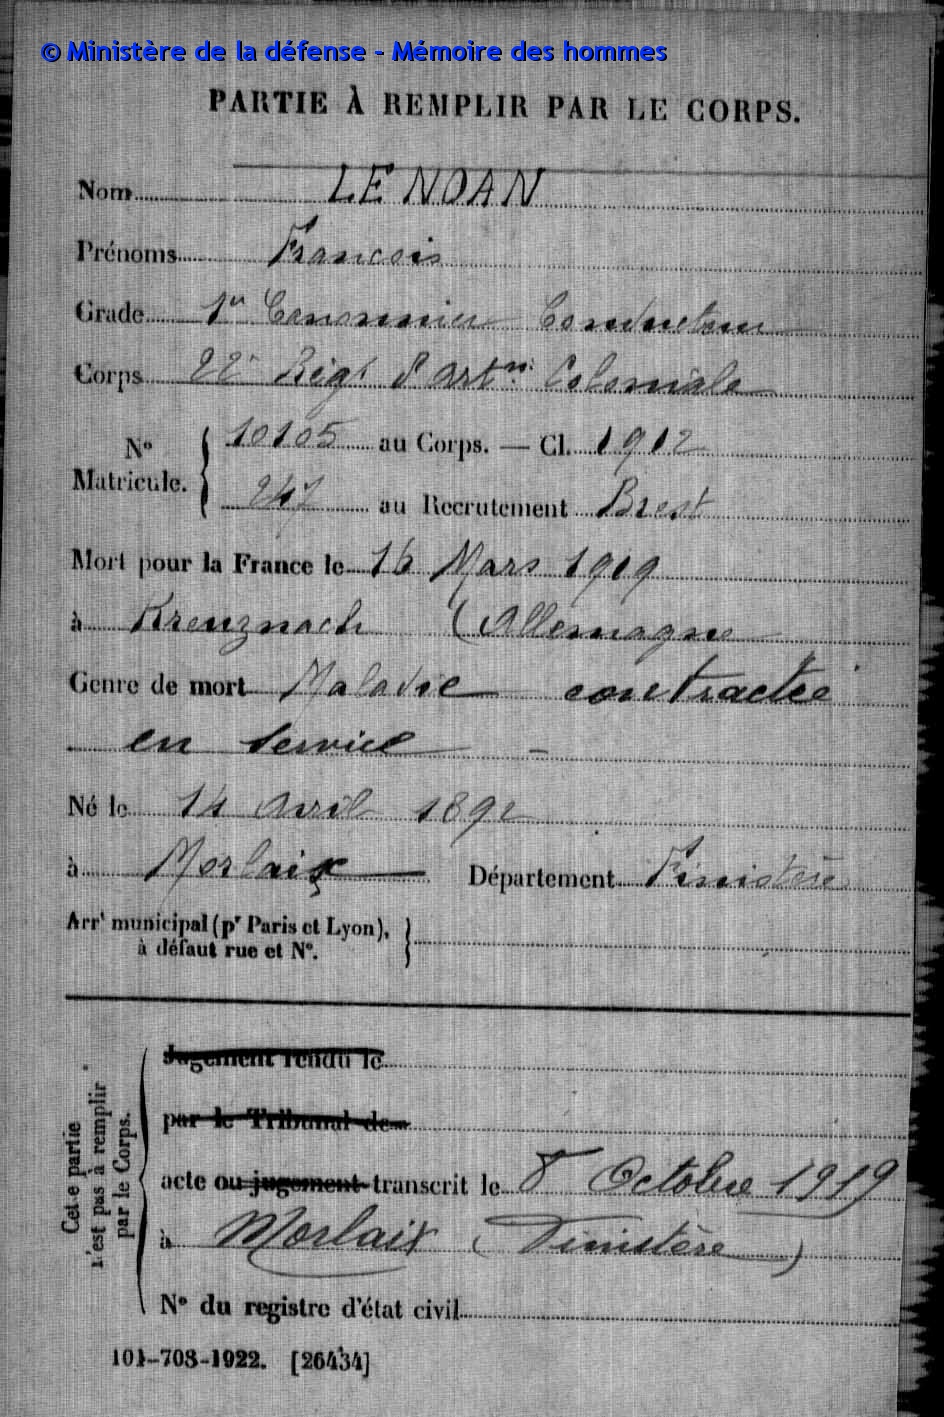 © Ministère de la défense - Mémoire des hommes
PARTIE À REMPLIR PAR LE CORPS.
Nom LE NOAN
Prénoms François
Grade 1er Canonnier Conducteur
Corps 22e Régt d'Artie Coloniale
N° Matricule. { 10105 au Corps. — Cl. 1912
247 au Recrutement Brest
Mort pour la France le 16 Mars 1919
à Kreuznach (Allemagne
Genre de mort Maladie contractée
en service -
Né le 14 Avril 1892
à Morlaix Département Finistère
Arrt municipal (pr Paris et Lyon),
à défaut rue et N°.
Cette partie
n'est pas à remplir
par le Corps.
Jugement rendu le
par le Tribunal de
acte ou jugement transcrit le 8 Octobre 1919
à Morlaix (Finistère)
N° du registre d'état civil
101-708-1922. [26434]